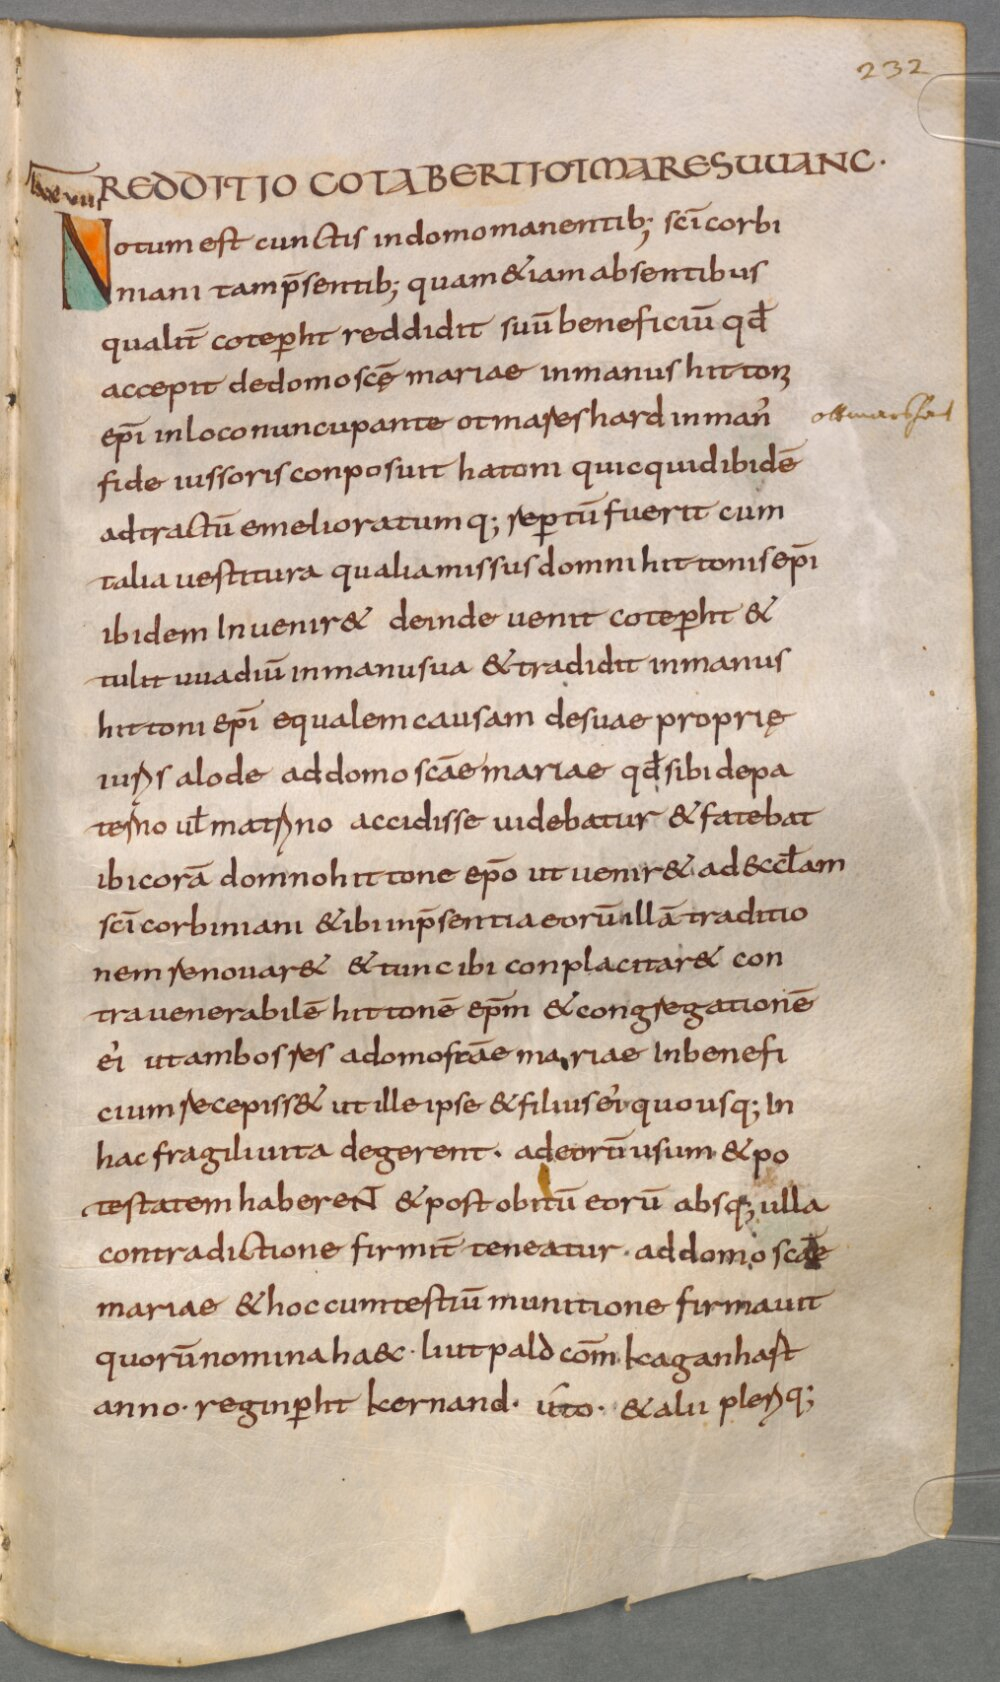 232
REDDITIO COTABERTI OTMARESUUANC.
Notum est cunctis in domo manentib; sc̄i corbi
niani tam p̄sentib; quam & iam absentibus
qualit̄ cotep̱ht reddidit suū beneficiū qđ
accepit de domo scę̄ mariae in manus hittoñ
ep̄i in loco nuncupante otmareshard in man̄
fide iussoris conposuit hatoni quicquid ibidē
adtractū emelioratumq; rep̱tū fuerit cum
talia vestitura qualia missus domni hittonis ep̄i
ibidem Invenir& deinde venit cotep̱ht &
tulit uuadiū in manu sua & tradidit in manus
hittoni ep̄i equalem causam de suae proprię
iuris alode ad domo scāe mariae qđ sibi de pa
terno ul̄ materno accidisse uidebatur & fatebat
ibi corā domno hittone ep̄o ut uenir& ad &ccl̄am
sc̄i corbiniani & ibi in p̄sentia eorū illā traditio
nem renouar& & tunc ibi conplacitar& con
tra uenerabilē hittonē ep̄m & congregationē
ei' ut ambos res a domo scāe mariae In benefi
cium recepiss& ut ille ipse & filius ei' quo usq; In
hac fragili uita degerent. ad eorū usum & po
testatem haberenT & post obitū eorū absq; ulla
contradictione firmit̄ teneatur. ad domo scāe
mariae & hoc cum testiū munitione firmauit
quorū nomina haec. liutpald com̄ kaganhast
anno. reginp̱ht kernand. uuto. & alii pleriq;